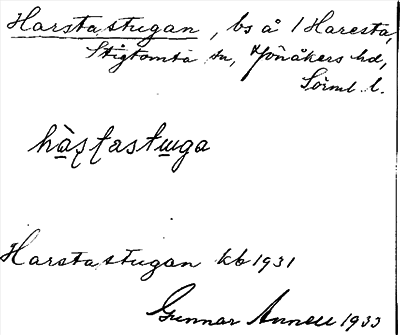 Harstastugan, bs å 1 Haresta,
Stigtomta sn, Jönåkers hd,
Sörml. l.
hàʂʈastuga
Harstastugan kb 1931
Gunnar Annell 1933